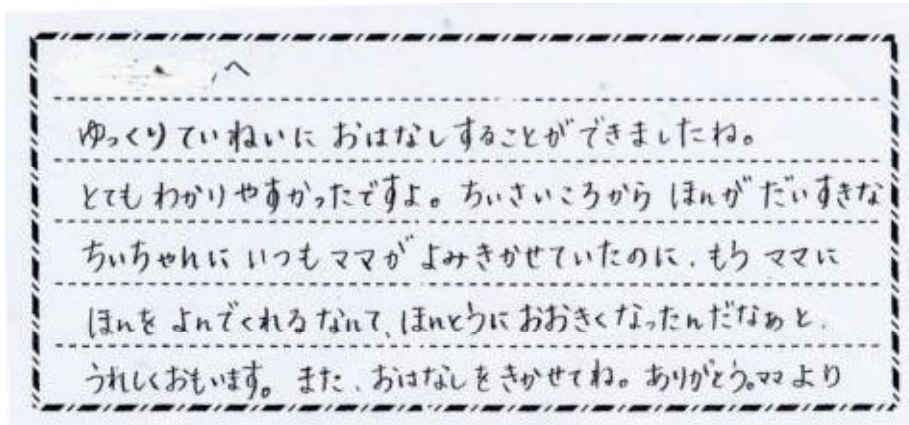 へ
ゆっくりていねいに おはなしすることができましたね。
とても わかりやすかったですよ。ちいさいころから ほんが だいすきな
ちいちゃんに いつも ママが よみきかせていたのに、もう ママに
ほんを よんでくれるなんて、ほんとうに おおきくなったんだなぁと、
うれしくおもいます。また、おはなしをきかせてね。ありがとう。ママより